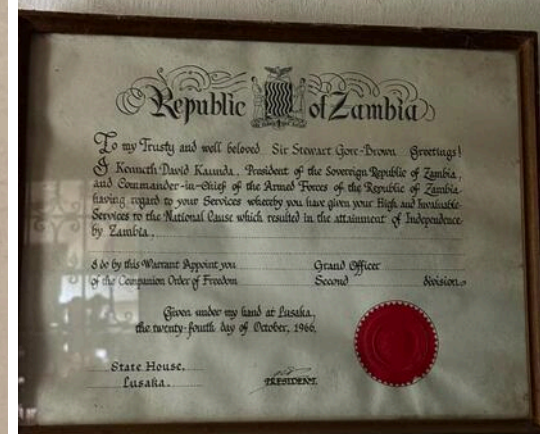 Republic of Zambia
To my Trusty and well beloved Sir Stewart Gore-Brown Greetings!
I Kenneth David Kaunda, President of the Sovereign Republic of Zambia,
and Commander-in-Chief of the Armed Forces of the Republic of Zambia
having regard to your Services whereby you have given your High and Invaluable
Services to the National Cause which resulted in the attainment of Independence
by Zambia.
I do by this Warrant Appoint you Grand Officer
of the Companion Order of Freedom Second division.
Given under my hand at Lusaka,
the twenty-fourth day of October, 1966.
State House,
Lusaka.
PRESIDENT.